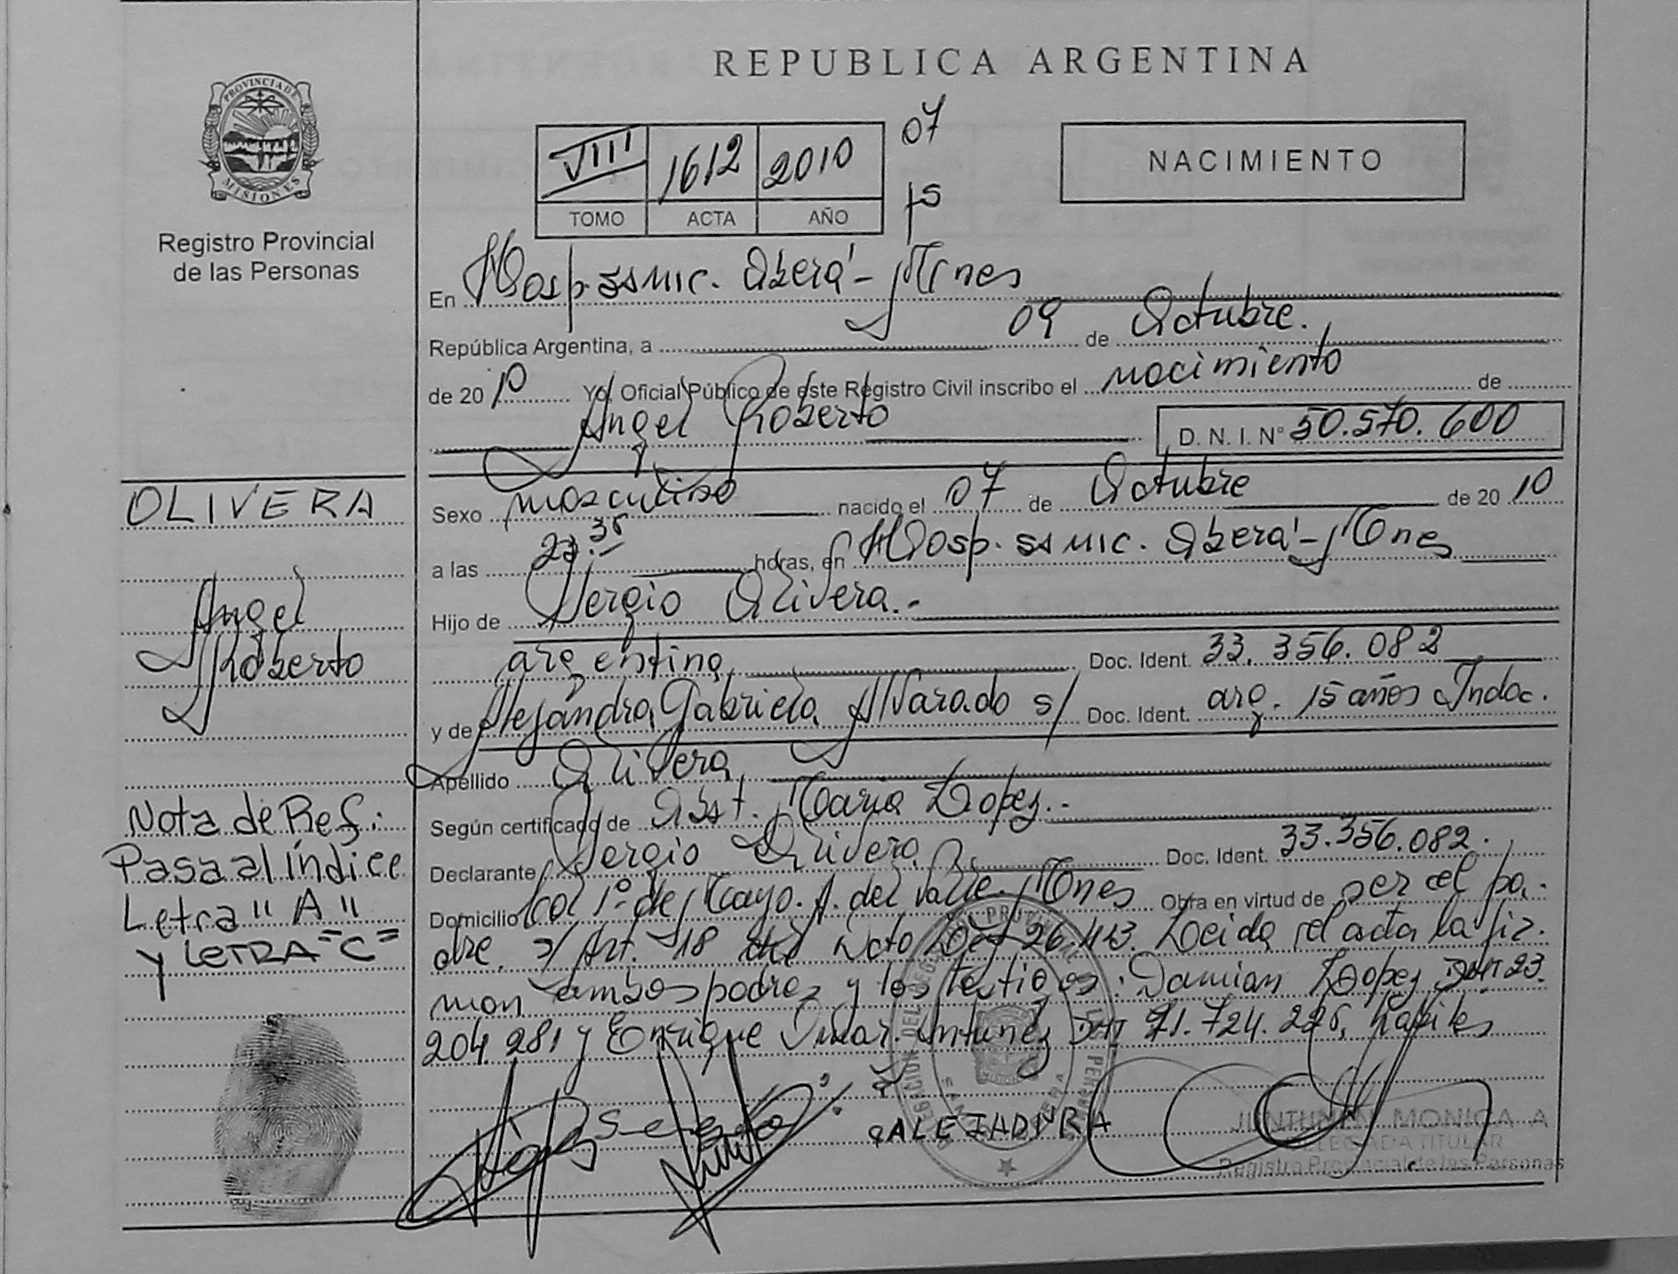 REPUBLICA ARGENTINA
PROVINCIA DE
MISIONES
Registro Provincial
de las Personas
VIII 1612 2010
TOMO ACTA AÑO
07
15
NACIMIENTO
En Hosp. SSMIC. Oberá - Mnes
República Argentina, a 09 de Octubre.
de 2010 Yo, Oficial Público de este Registro Civil inscribo el nacimiento de
Angel Roberto D. N. I. Nº 50.570.600
Sexo masculino nacido el 07 de Octubre de 2010
a las 22:35 horas, en Hosp. SSMIC. Oberá - Mnes
Hijo de Sergio Olivera.-
argentina Doc. Ident. 33.356.082
y de Alejandra Gabriela Alvarado s/ Doc. Ident. arg. 15 años Indoc.
Apellido Olivera
Según certificado de Obst. Maria Lopez.-
Declarante Sergio Olivera Doc. Ident. 33.356.082.
Domicilio Col 1º de Mayo. A. del Valle. Mnes Obra en virtud de ser el pa-
dre. s/ Art. 18 Ley 26.413. Leida el acta la fir-
man ambos padres y los testigos: Damian Lopez DNI 23.
204.281 y Enrique Omar Antunez DNI 21.724.226,
OLIVERA
Angel
Roberto
Nota de Ref.:
Pasa al índice
Letra "A"
y LETRA "C"
ALEJANDRA
JUNTUNEN MONICA A
DELEGADA TITULAR
Registro Provincial de las Personas